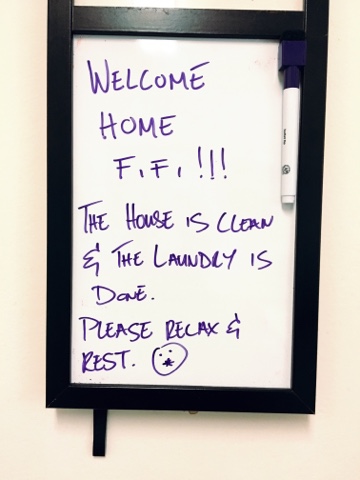 WELCOME
HOME
F.F. !!!
THE HOUSE IS CLEAN
& THE LAUNDRY IS
DONE.
PLEASE RELAX &
REST.